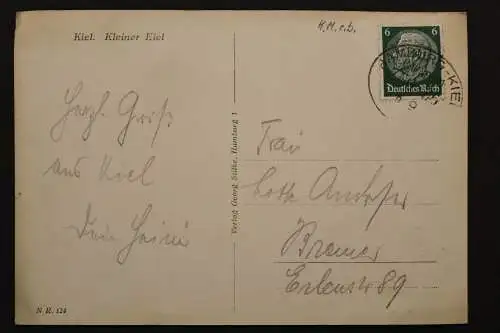 Kiel. Kleiner Kiel
H.M.r.b.
6 6
Deutsches Reich
KIEL
Herzl. Gruß
aus Kiel
Dein Heini
Verlag Georg Stilke, Hamburg 1
Frau
Bremen
Erlenstr 89
N H. 124